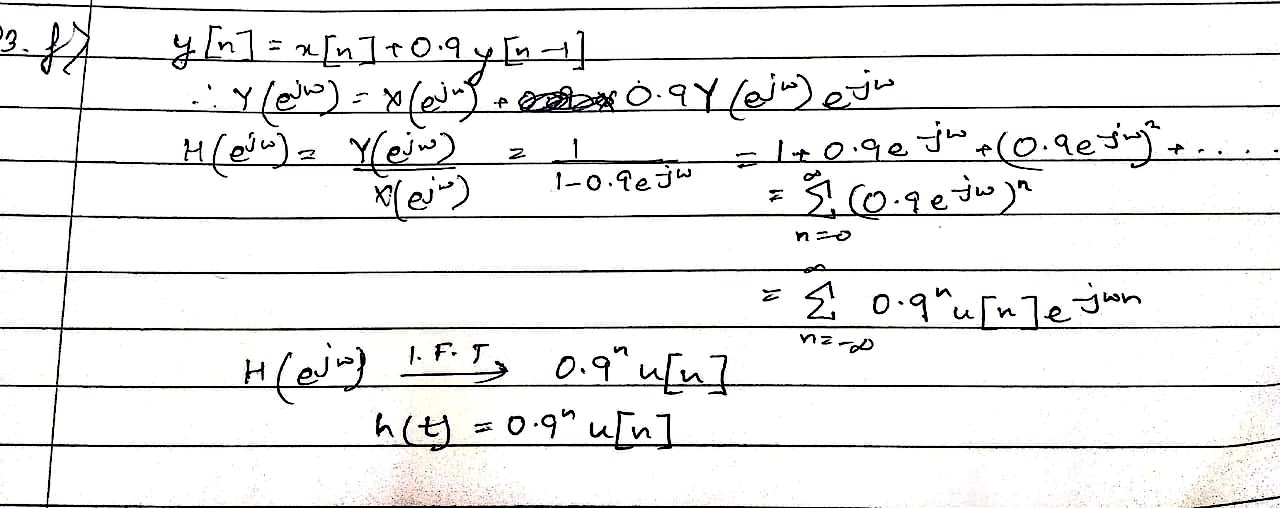 3. f) y[n] = x[n] + 0.9 y[n-1]
∴ Y(e^jω) = X(e^jω) + 0.9Y(e^jω) e^-jω
H(e^jω) = Y(e^jω)/X(e^jω) = 1/(1-0.9e^-jω) = 1 + 0.9e^-jω + (0.9e^-jω)² + .....
= ∞Σn=0 (0.9e^-jω)^n
= ∞Σn=-∞ 0.9^n u[n]e^-jωn
H(e^jω) I.F.T → 0.9^n u[n]
h(t) = 0.9^n u[n]